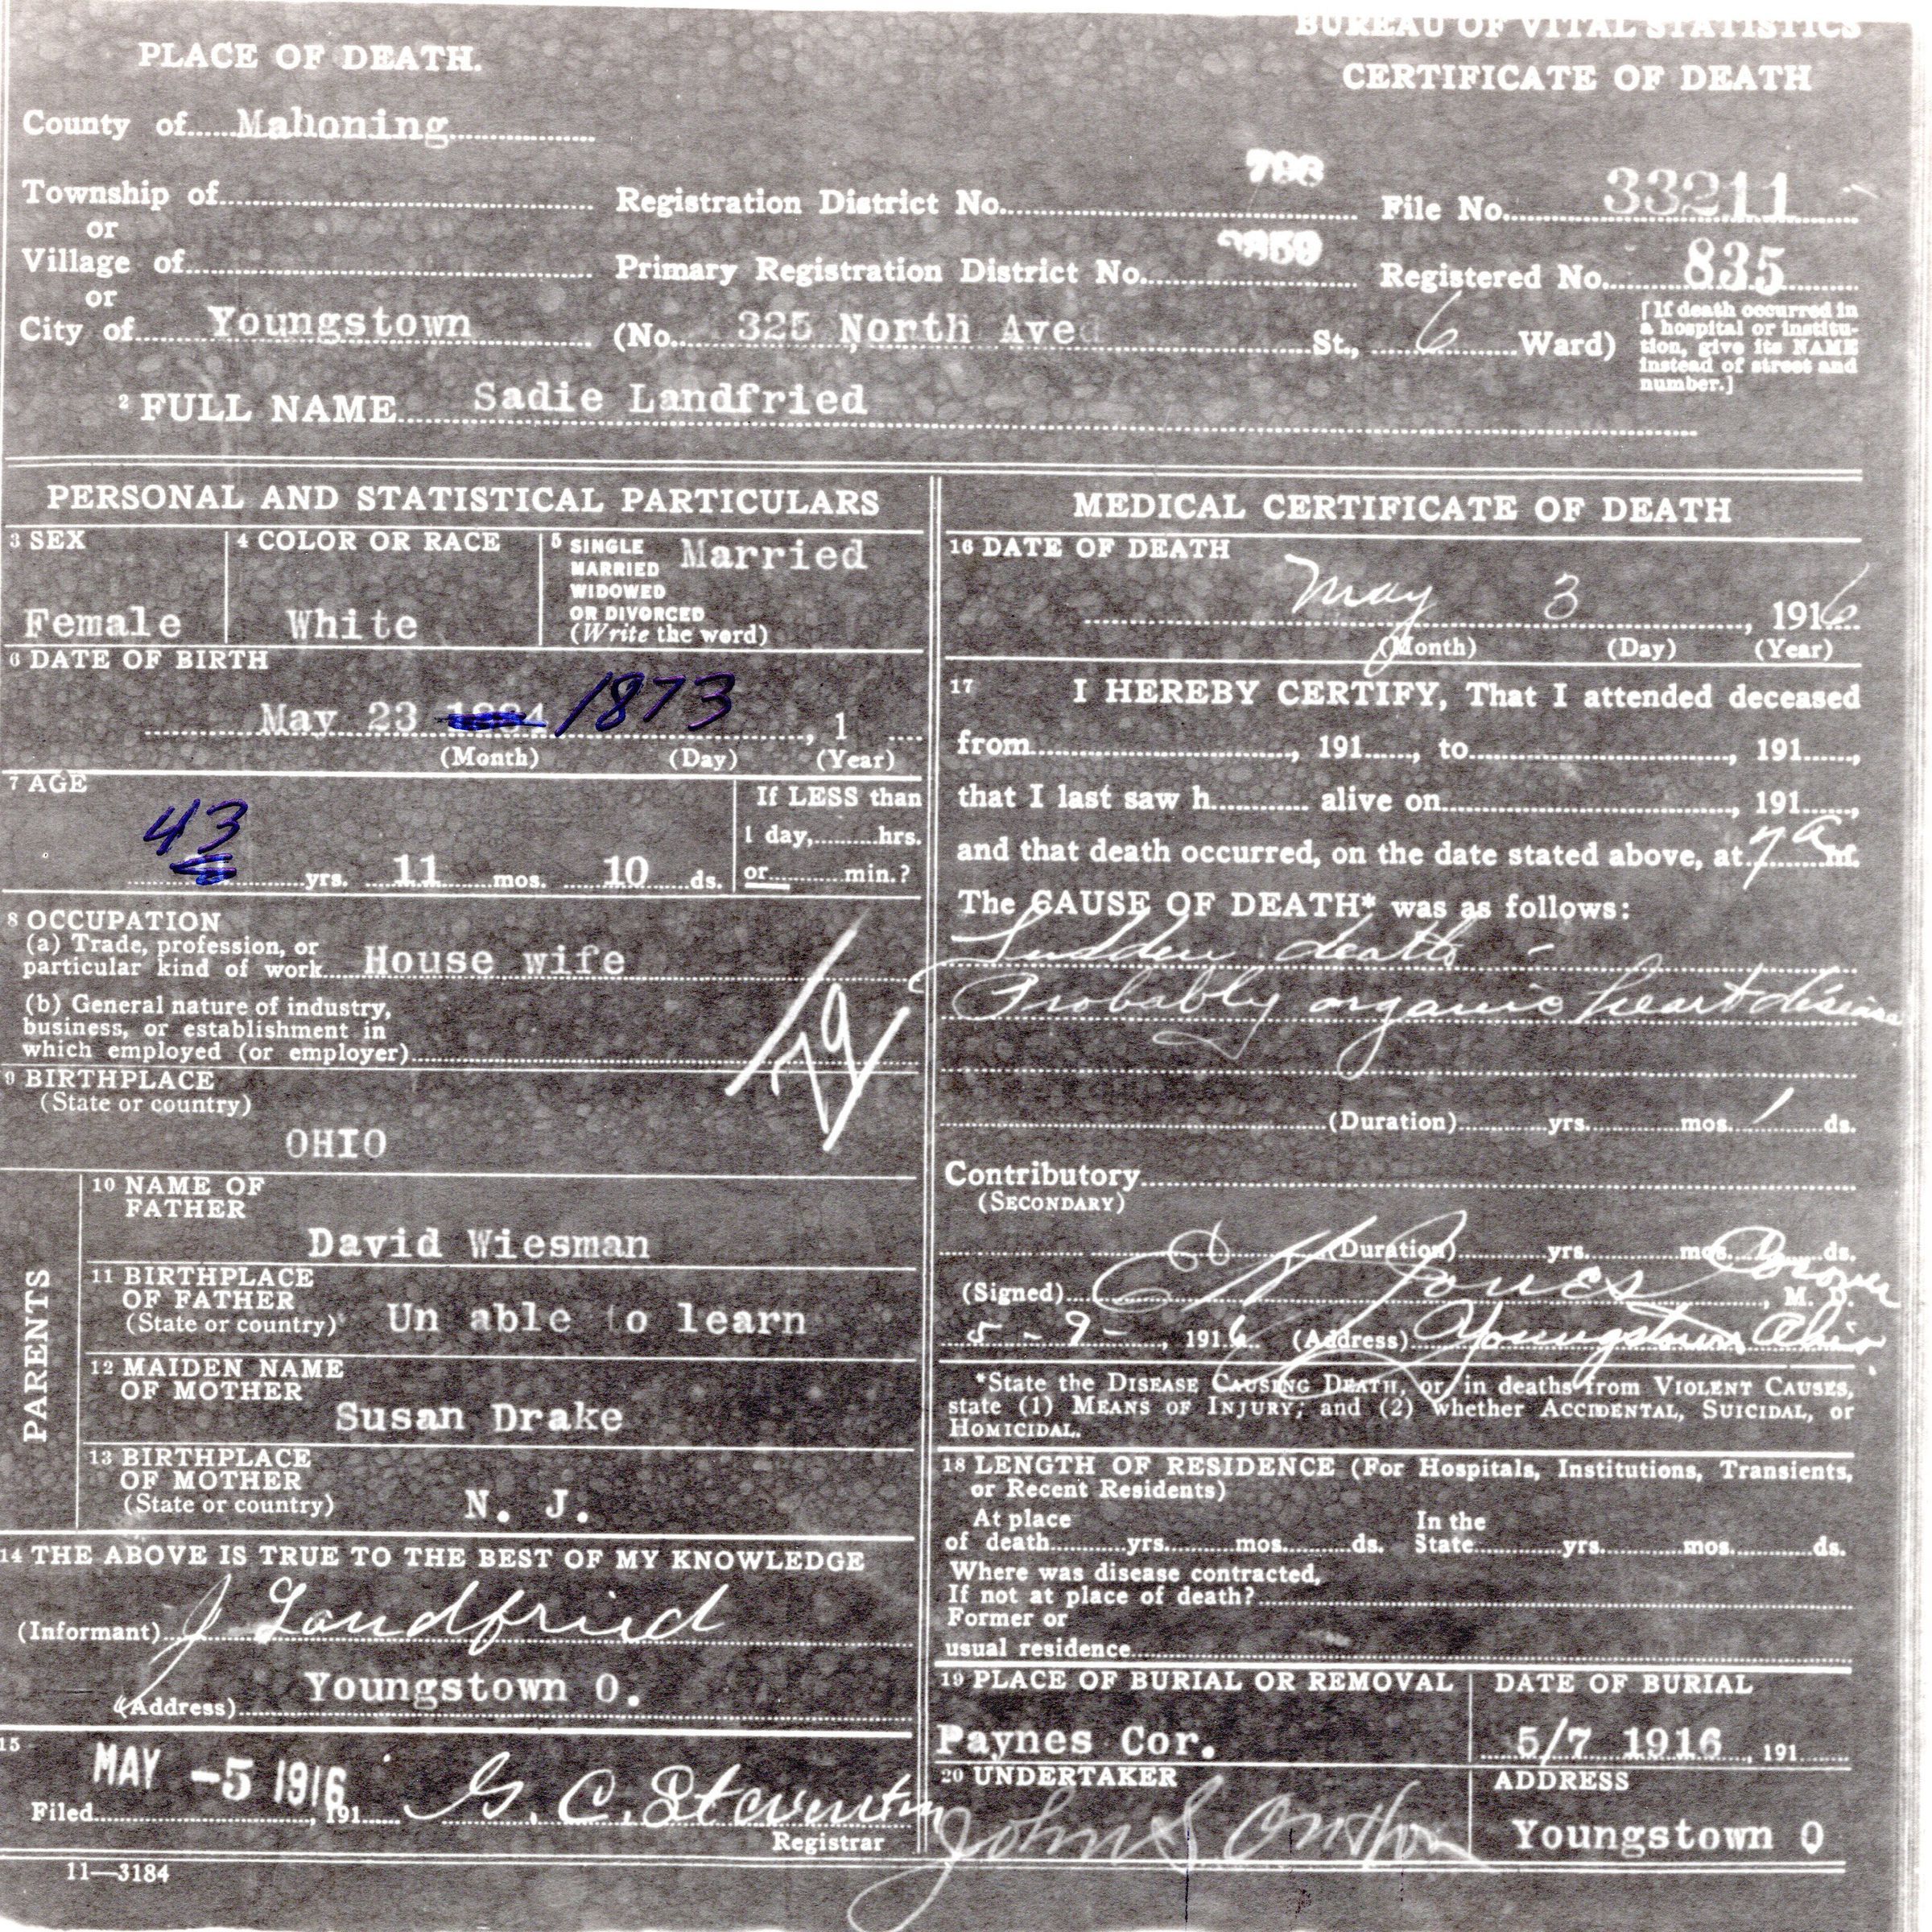 BUREAU OF VITAL STATISTICS
CERTIFICATE OF DEATH
PLACE OF DEATH.
County of Mahoning
Township of
or
Village of
or
City of Youngstown
Registration District No. 796
File No. 33211
Primary Registration District No.
Registered No. 835
(No. 325 North Ave St., 6 Ward)
[If death occurred in
a hospital or institu-
tion, give its NAME
instead of street and
number.]
2 FULL NAME Sadie Landfried
PERSONAL AND STATISTICAL PARTICULARS
3 SEX
Female
4 COLOR OR RACE
White
5 SINGLE
MARRIED
WIDOWED
OR DIVORCED
(Write the word)
Married
6 DATE OF BIRTH
May 23 1873 , 1
(Month) (Day) (Year)
7 AGE
43
yrs. 11 mos. 10 ds.
If LESS than
1 day, hrs.
or min.?
8 OCCUPATION
(a) Trade, profession, or
particular kind of work House wife
(b) General nature of industry,
business, or establishment in
which employed (or employer)
79
9 BIRTHPLACE
(State or country)
OHIO
PARENTS
10 NAME OF
FATHER
David Wiesman
11 BIRTHPLACE
OF FATHER
(State or country) Un able to learn
12 MAIDEN NAME
OF MOTHER
Susan Drake
13 BIRTHPLACE
OF MOTHER
(State or country) N. J.
14 THE ABOVE IS TRUE TO THE BEST OF MY KNOWLEDGE
(Informant) J Landfried
(Address) Youngstown O.
15
Filed MAY -5 1916, 191
G. C. Registrar
11—3184
MEDICAL CERTIFICATE OF DEATH
16 DATE OF DEATH
May 3 , 1916
(Month) (Day) (Year)
17 I HEREBY CERTIFY, That I attended deceased
from , 191 , to , 191 ,
that I last saw h alive on , 191 ,
and that death occurred, on the date stated above, at 7 a m.
The CAUSE OF DEATH* was as follows:
Sudden death -
Probably organic heart disease
(Duration) yrs. mos. 1 ds.
Contributory
(SECONDARY)
(Duration) yrs. mos. ds.
(Signed) Jones Coroner, M. D.
5 - 9 - , 1916 (Address) Youngstown Ohio
*State the DISEASE CAUSING DEATH, or, in deaths from VIOLENT CAUSES,
state (1) MEANS OF INJURY; and (2) whether ACCIDENTAL, SUICIDAL, or
HOMICIDAL.
18 LENGTH OF RESIDENCE (For Hospitals, Institutions, Transients,
or Recent Residents)
At place
of death yrs. mos. ds.
In the
State yrs. mos. ds.
Where was disease contracted,
If not at place of death?
Former or
usual residence
19 PLACE OF BURIAL OR REMOVAL
Paynes Cor.
DATE OF BURIAL
5/7 1916 , 191
20 UNDERTAKER
John S
ADDRESS
Youngstown O